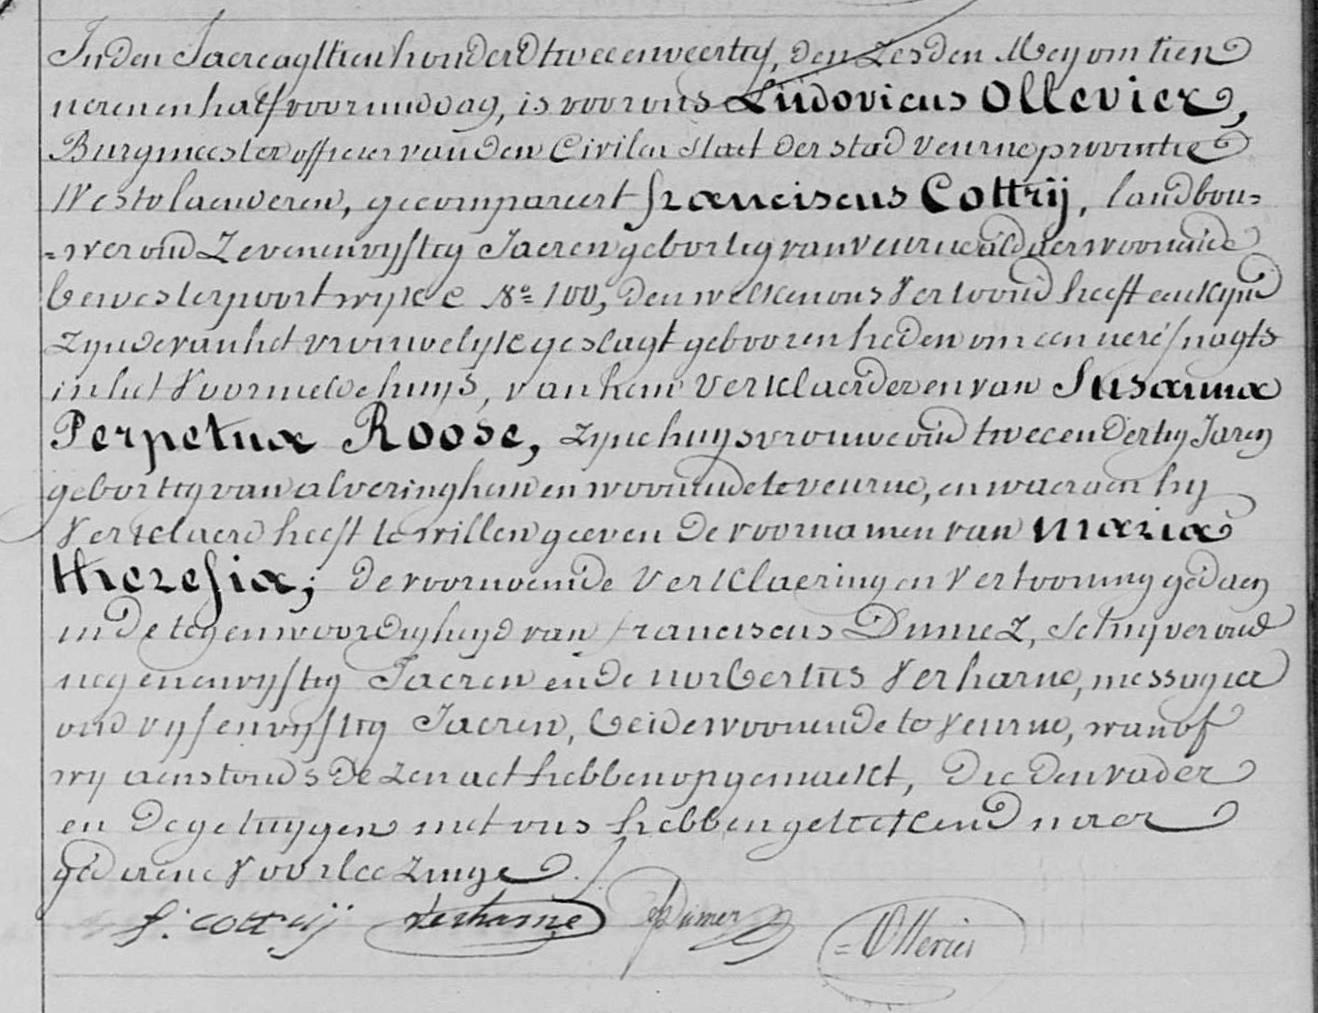 In den Jaere agttien honderd twee en veertig, den Zesden Mey om tien
ueren en half voormiddag, is voor ons Ludovicus Ollevier,
Burgmeester officier van den Civilen Staet der stad Veurne provintie
Westvlaenderen, gecompareert franciscus Cottrij, landbou=
=wer oud Zeven en vyftig Jaeren gebortig van veurne aldaer woonende
bewesterpoort wyk C N.º 100, den welken ons Vertoond heeft een Kynd
zynde van het vrouwelyk geslagt gebooren heden om een uere s'nagts
in het Voormelde huys, van hem Verklaerder en van Susanna
Perpetua Roose, zyne huysvrouwe oud twee en dertig Jaren
gebortig van alveringhem en woonende te veurne, en waeraen hy
Verklaerd heeft te willen geeven de voornamen van maria
theresia; de voornoemde Verklaering en Vertooning gedaen
in de tegenwoordigheyd van franciscus Dumez, schryver oud
negen en vyftig Jaeren en de norbertus Verharne, messagier
oud vyf en vyftig Jaeren, beide woonende te Veurne, waer of
wy aenstonds dezen act hebben opgemaekt, die den vader
en de getuygen met ons hebben geteekend naer
gedaene Voorleezinge.
f. Cottrij Verharne Dumez Ollevier